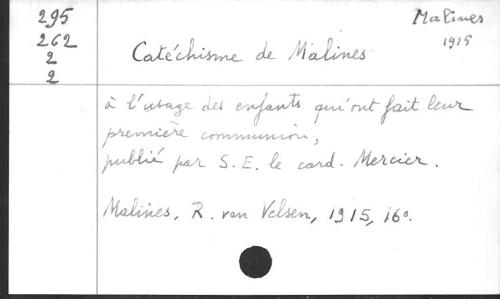 295
262
2
2
Malines
1915
Catéchisme de Malines
à l'usage des enfants qui ont fait leur
première communion,
publié par S. E. le card. Mercier.
Malines, R. van Velsen, 1915, 16º.